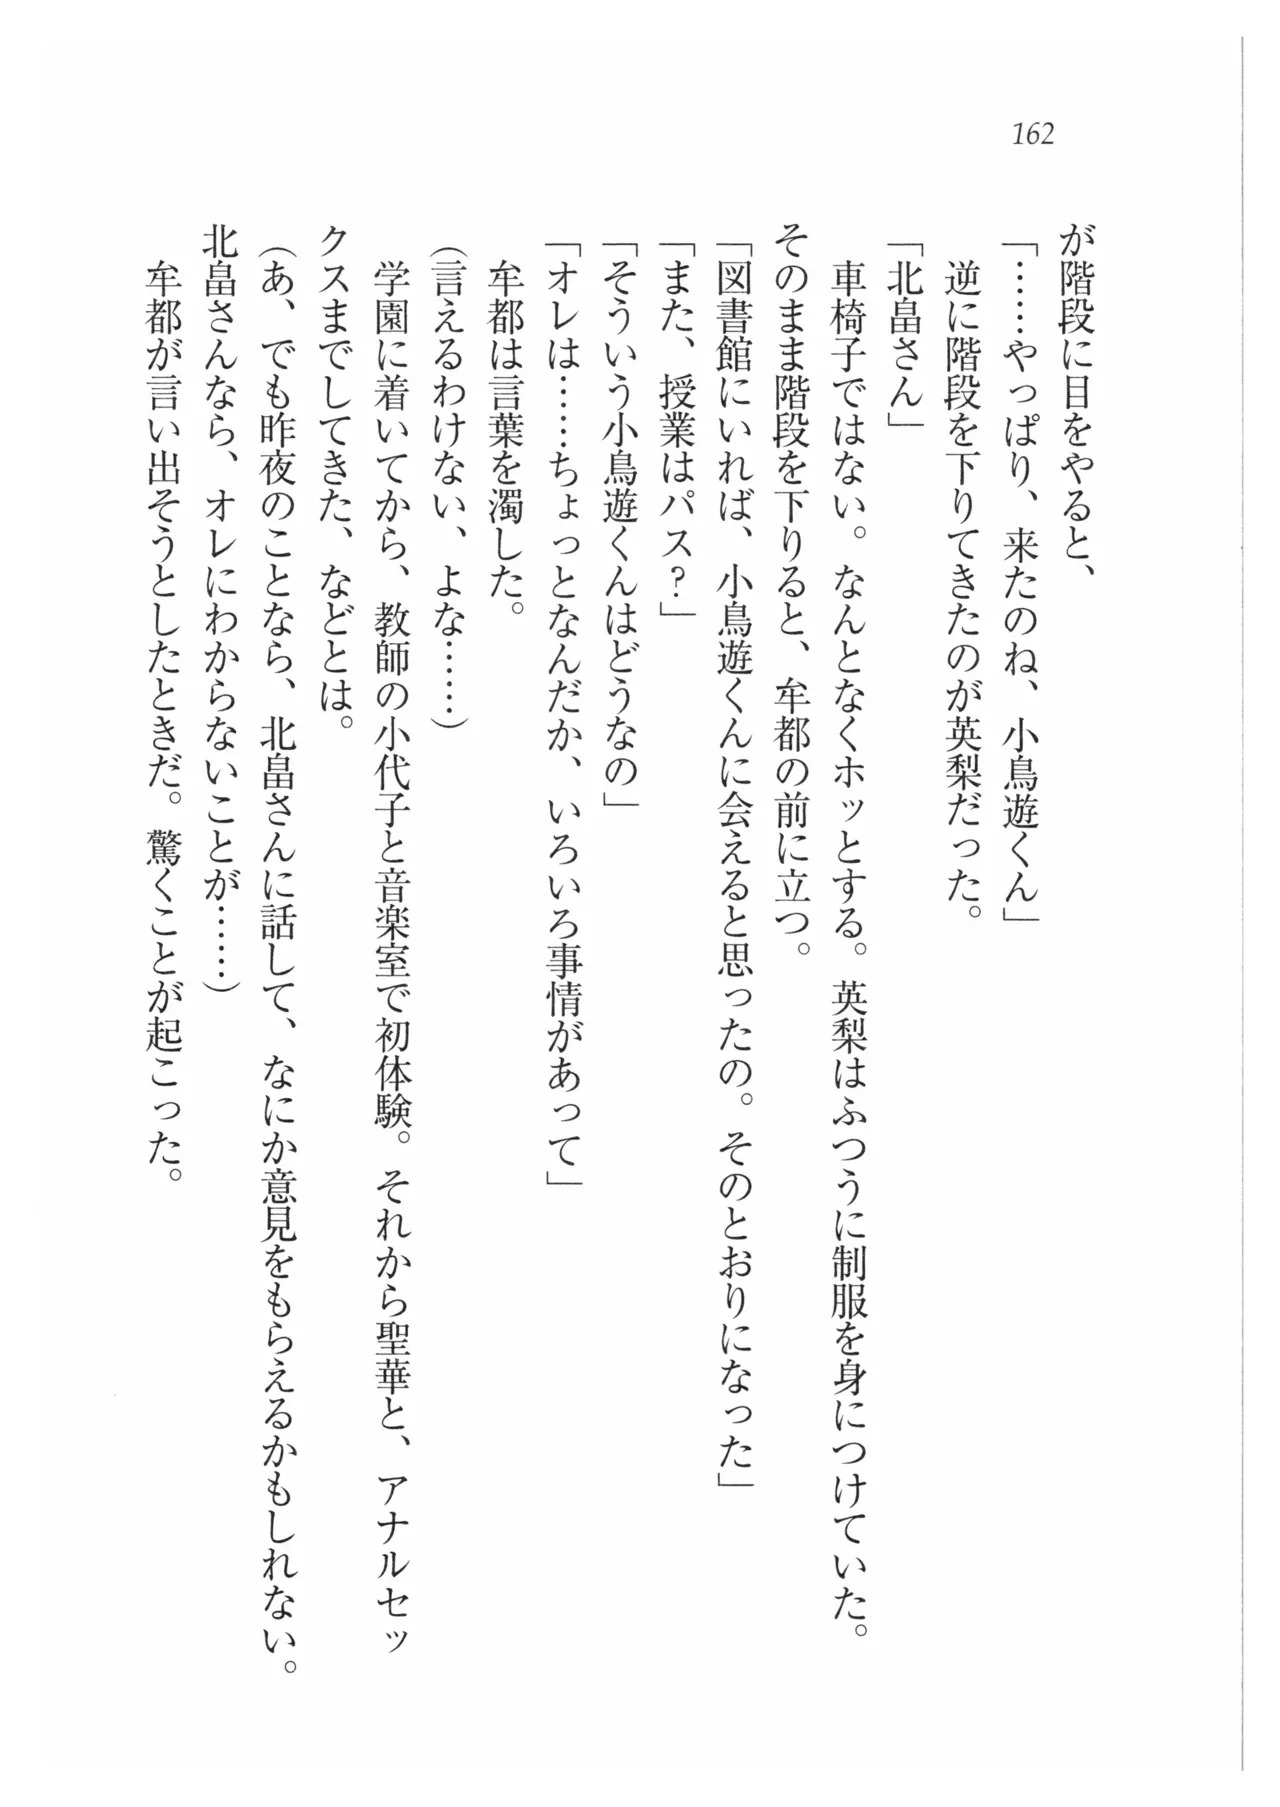 162
が階段に目をやると、
「……やっぱり、来たのね、小鳥遊くん」
逆に階段を下りてきたのが英梨だった。
「北畠さん」
車椅子ではない。なんとなくホッとする。英梨はふつうに制服を身につけていた。
そのまま階段を下りると、牟都の前に立つ。
「図書館にいれば、小鳥遊くんに会えると思ったの。そのとおりになった」
「また、授業はパス？」
「そういう小鳥遊くんはどうなの」
「オレは……ちょっとなんだか、いろいろ事情があって」
牟都は言葉を濁した。
（言えるわけない、よな……）
学園に着いてから、教師の小代子と音楽室で初体験。それから聖華と、アナルセッ
クスまでしてきた、などとは。
（あ、でも昨夜のことなら、北畠さんに話して、なにか意見をもらえるかもしれない。
北畠さんなら、オレにわからないことが……）
牟都が言い出そうとしたときだ。驚くことが起こった。